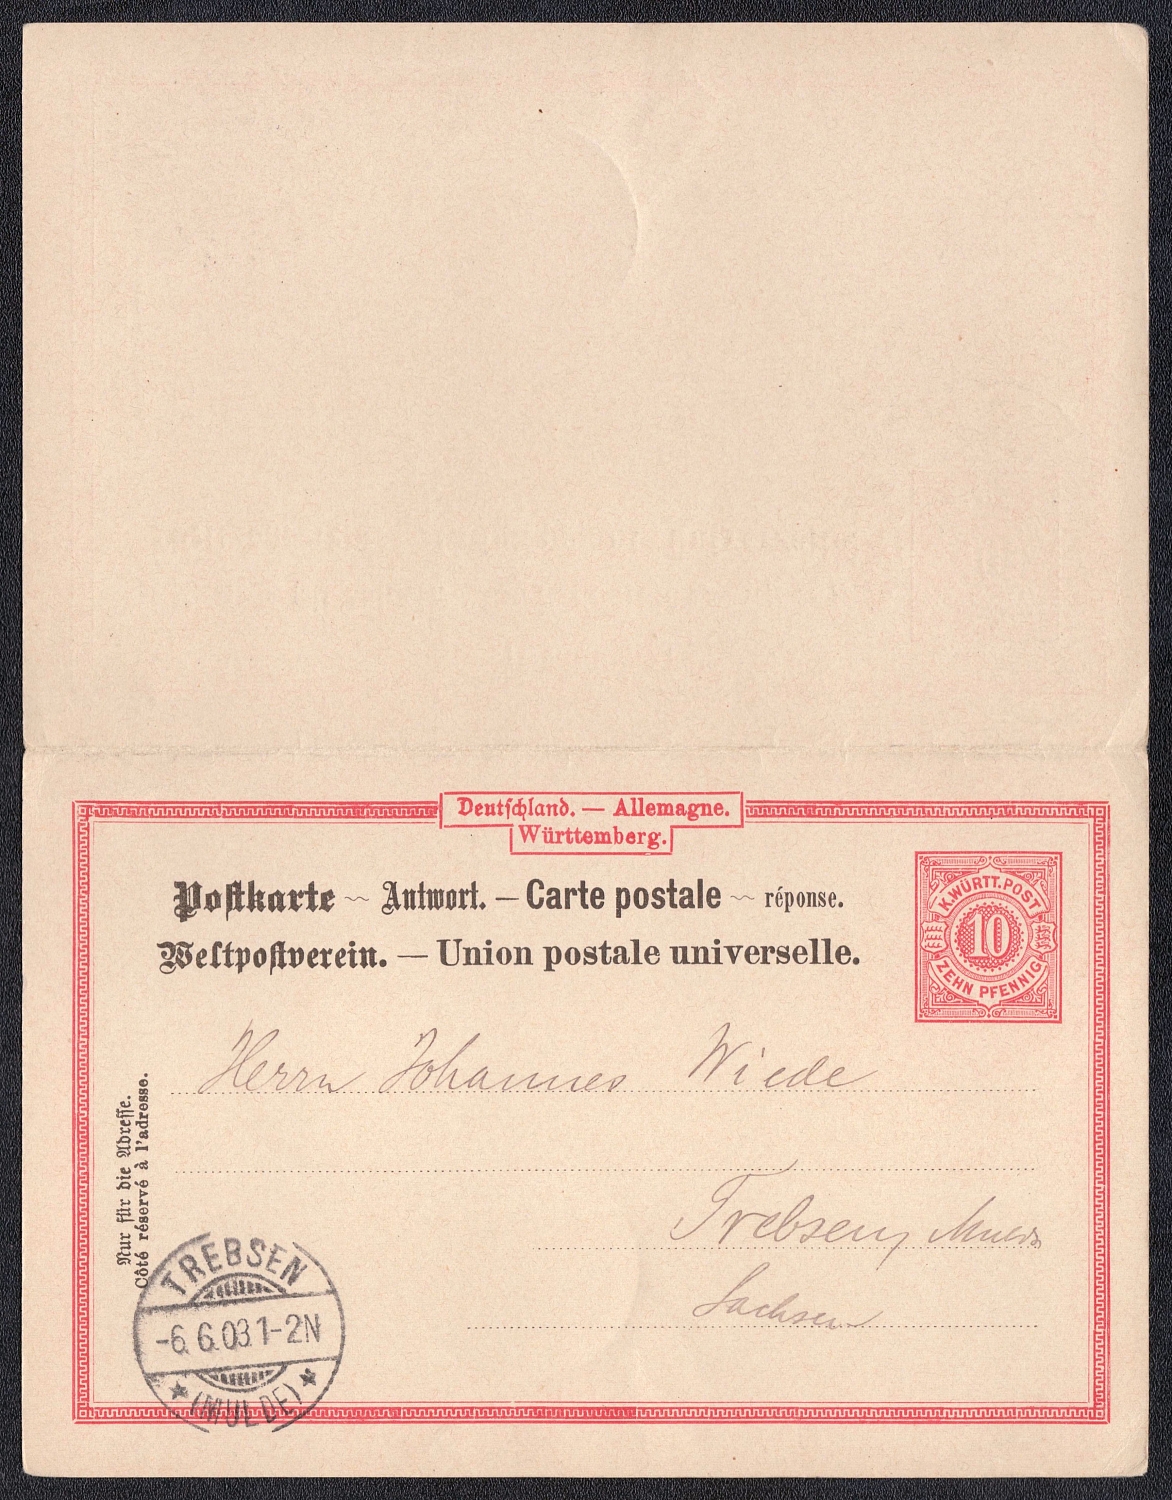 Deutschland. — Allemagne.
Württemberg.
Postkarte ~ Antwort. — Carte postale ~ réponse.
Weltpostverein. — Union postale universelle.
K. WÜRTT. POST
10
ZEHN PFENNIG
Nur für die Adresse.
Côté réservé à l'adresse.
Herrn Johannes Wiede
Trebsen, Mulde
Sachsen
TREBSEN
-6.6.03.1-2N
(MULDE)